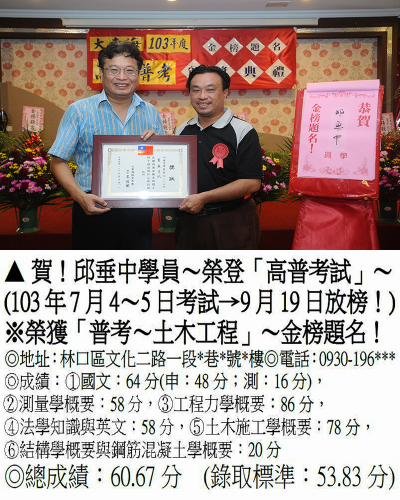 103年度
金榜題名
普考
典禮
獎狀
恭賀
邱垂中
同學
金榜題名！
▲賀！邱垂中學員～榮登「高普考試」～
(103年7月4～5日考試→9月19日放榜！)
※榮獲「普考～土木工程」～金榜題名！
◎地址：林口區文化二路一段*巷*號*樓◎電話：0930-196***
◎成績：①國文：64分(申：48分；測：16分)，
②測量學概要：58分，③工程力學概要：86分，
④法學知識與英文：58分，⑤土木施工學概要：78分，
⑥結構學概要與鋼筋混凝土學概要：20分
◎總成績：60.67分 (錄取標準：53.83分)